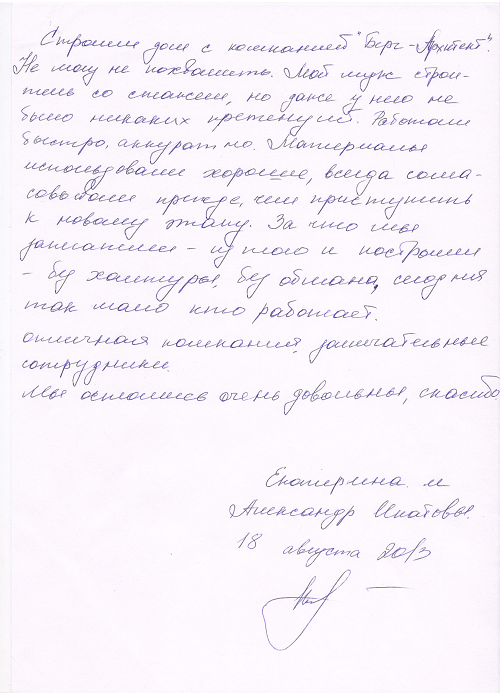 Строили дом с компанией "Берг-Архитект".
Не могу не похвалить. Мой муж строи-
тель со стажем, но даже у него не
было никаких претензий. Работали
быстро, аккуратно. Материалы
использовали хорошие, всегда согла-
совывали прежде, чем приступить
к новому этапу. За что мы
заплатили - из того и построили
- без халтуры, без обмана, сегодня
так мало кто работает.
отличная компания, замечательные
сотрудники.
Мы остались очень довольны, спасибо.
Екатерина и
Александр
18 августа 2013